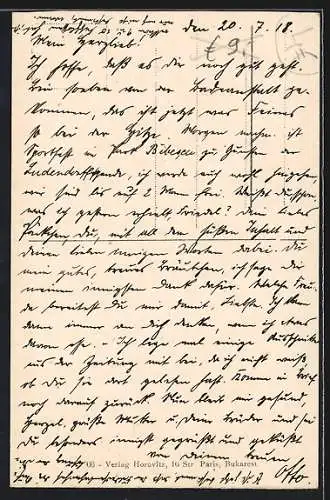 den 20. 7. 18.
€ 9.-
Mein Herzlieb.
Ich hoffe, daß es dir noch gut geht.
Bin soeben von der Badeanstalt ge-
kommen, das ist jetzt was Feines
so bei der Hitze. Morgen nachm. ist
Sportfest im Park Bibescu zu Gunsten der
Ludendorffspende, ich werde auch wohl hingehen,
wir sind bis auf 2 Mann frei. Weißt du schon,
was ich gestern erhielt Friedel? Dein liebes
Päckchen, du, mit all dem süßen Inhalt und
deinen lieben innigen Worten dabei. Du
mein gutes, treues Bräutchen, ich sage dir
meinen innigsten Dank dafür. Welche Freu-
de bereitest du mir damit, Liebste. Ich kann
dann immer an dich denken, wenn ich etwas
davon esse. - Ich lege mal einige Ausschnitte
aus der Zeitung mit bei, da ich nicht weiß,
ob du sie dort gelesen hast. Komme im Brief
noch darauf zurück. Nun bleib mir gesund,
Herzel, grüße Mutter u. dein Bruder und sei
du besonders innigst gegrüßt und geküßt
von deinem treuen
Otto
- Verlag Horovitz, 16 Str. Paris, Bukarest.